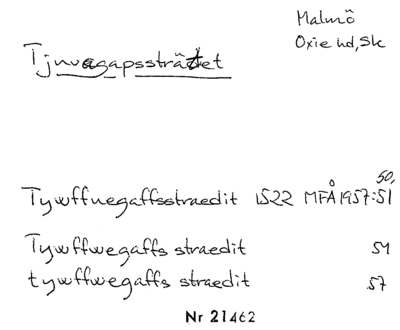 Malmö
Oxie hd, Sk
Tjuvagapssträtet
50,
Tywffuegaffsstraedit 1522 MFÅ 1957:51
Tywffwegaffs straedit 51
tywffwegaffs straedit 57
Nr 21462